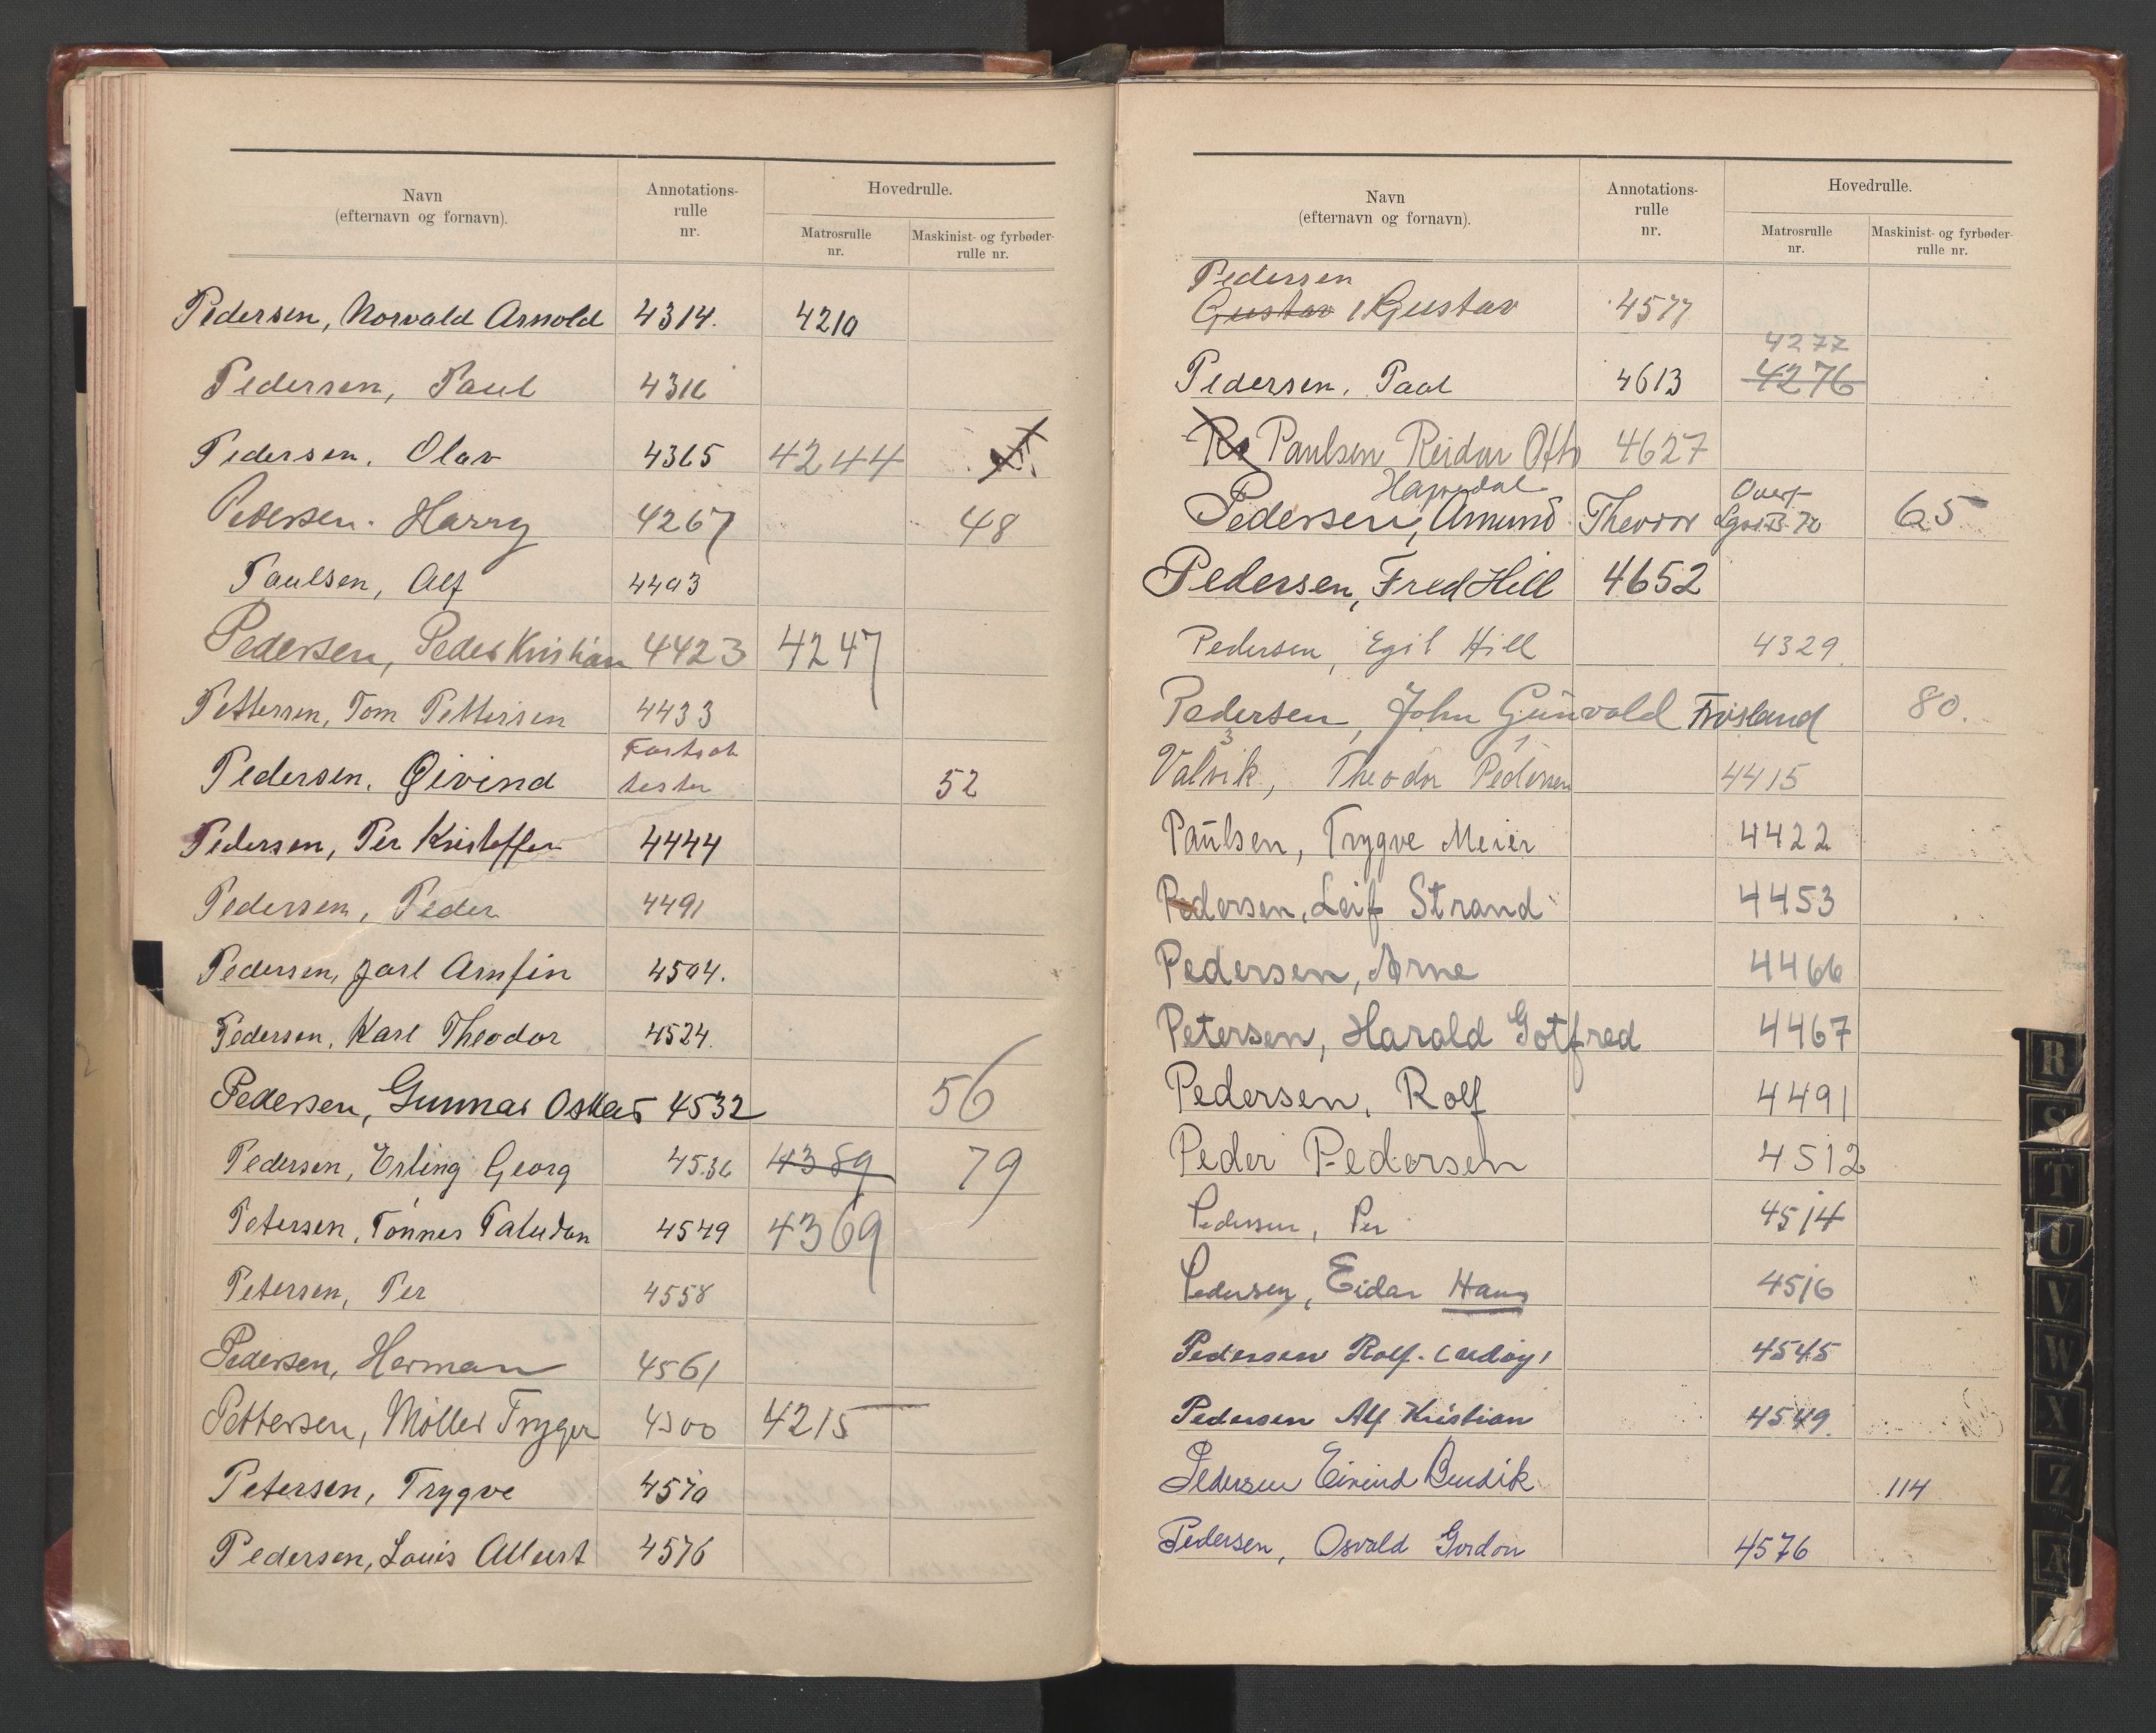 Navn
(efternavn og fornavn).
Annotations-
rulle
nr.
Hovedrulle.
Matrosrulle
nr.
Maskinist- og fyrbøder-
rulle nr.
Pedersen, Norvald Arnold 4314. 4210
Pedersen, Paul 4316
Pedersen, Olav 4365 4244
Pedersen. Harry 4267 48
Paulsen, Alf 4403
Pedersen, Peder Kristian 4423 4247
Pettersen, Tom Pettersen 4433
Pedersen, Øivind 52
Pedersen, Per Kristoffer 4444
Pedersen, Peder 4491
Pedersen, Jarl Arnfin 4504.
Pedersen, Karl Theodor 4524.
Pedersen, Gunnar Oskar 4532 56
Pedersen, Erling Georg 4536 4389 79
Petersen, Tønnes Paludan 4549 4369
Petersen, Per 4558
Pedersen, Herman 4561
Pettersen, Møller Trygve 4300 4215
Petersen, Trygve 4570
Pedersen, Louis Albert 4576
Navn
(efternavn og fornavn).
Annotations-
rulle
nr.
Hovedrulle.
Matrosrulle
nr.
Maskinist- og fyrbøder-
rulle nr.
Pedersen
Gustav, Gustav 4577
4277
Pedersen, Paal 4613 4276
Re Paulsen Reidar Otto 4627
Pedersen, Amund Theodor 65
Pedersen, Fred Hill 4652
Pedersen, Egil Hill 4329.
Pedersen, John Gunvald Frøsland 80.
3 1
Valvik, Theodor Pedersen 4415
Paulsen, Trygve Meier 4422
Pedersen, Leif Strand 4453
Pedersen, Arne 4466
Petersen, Harald Gotfred 4467
Pedersen, Rolf 4491
Peder Pedersen 4512
Pedersen, Per 4514
Pedersen, Eidar Hans 4516
Pedersen Rolf. 4545
Pedersen Alf Kristian 4549.
Pedersen Eivind Bendik 114
Pedersen, Osvald Gordon 4576
R
S
T
U
V
W
X
Z